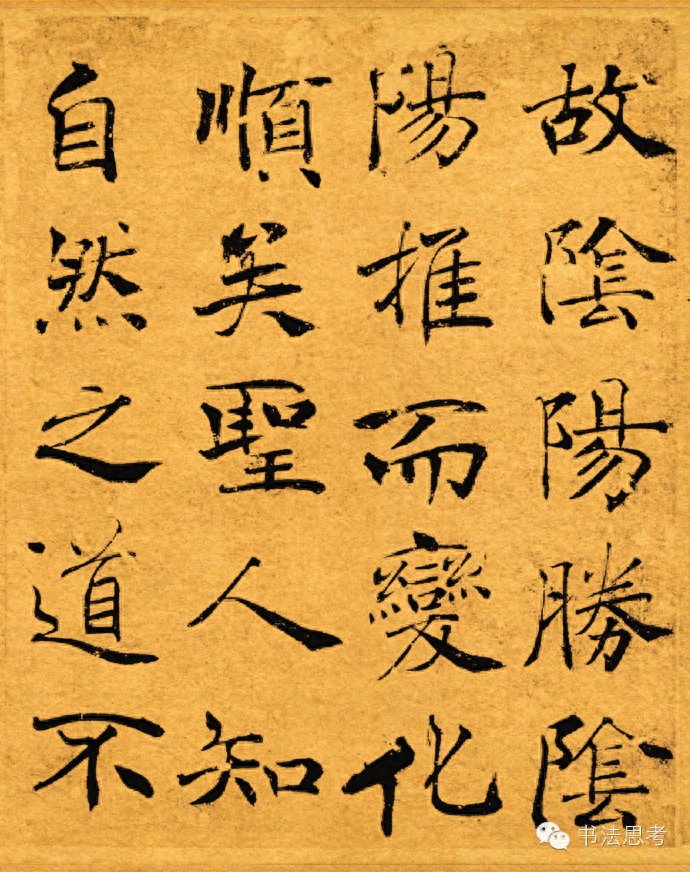 故陰陽勝陰
陽推而變化
順矣聖人知
自然之道不
书法思考